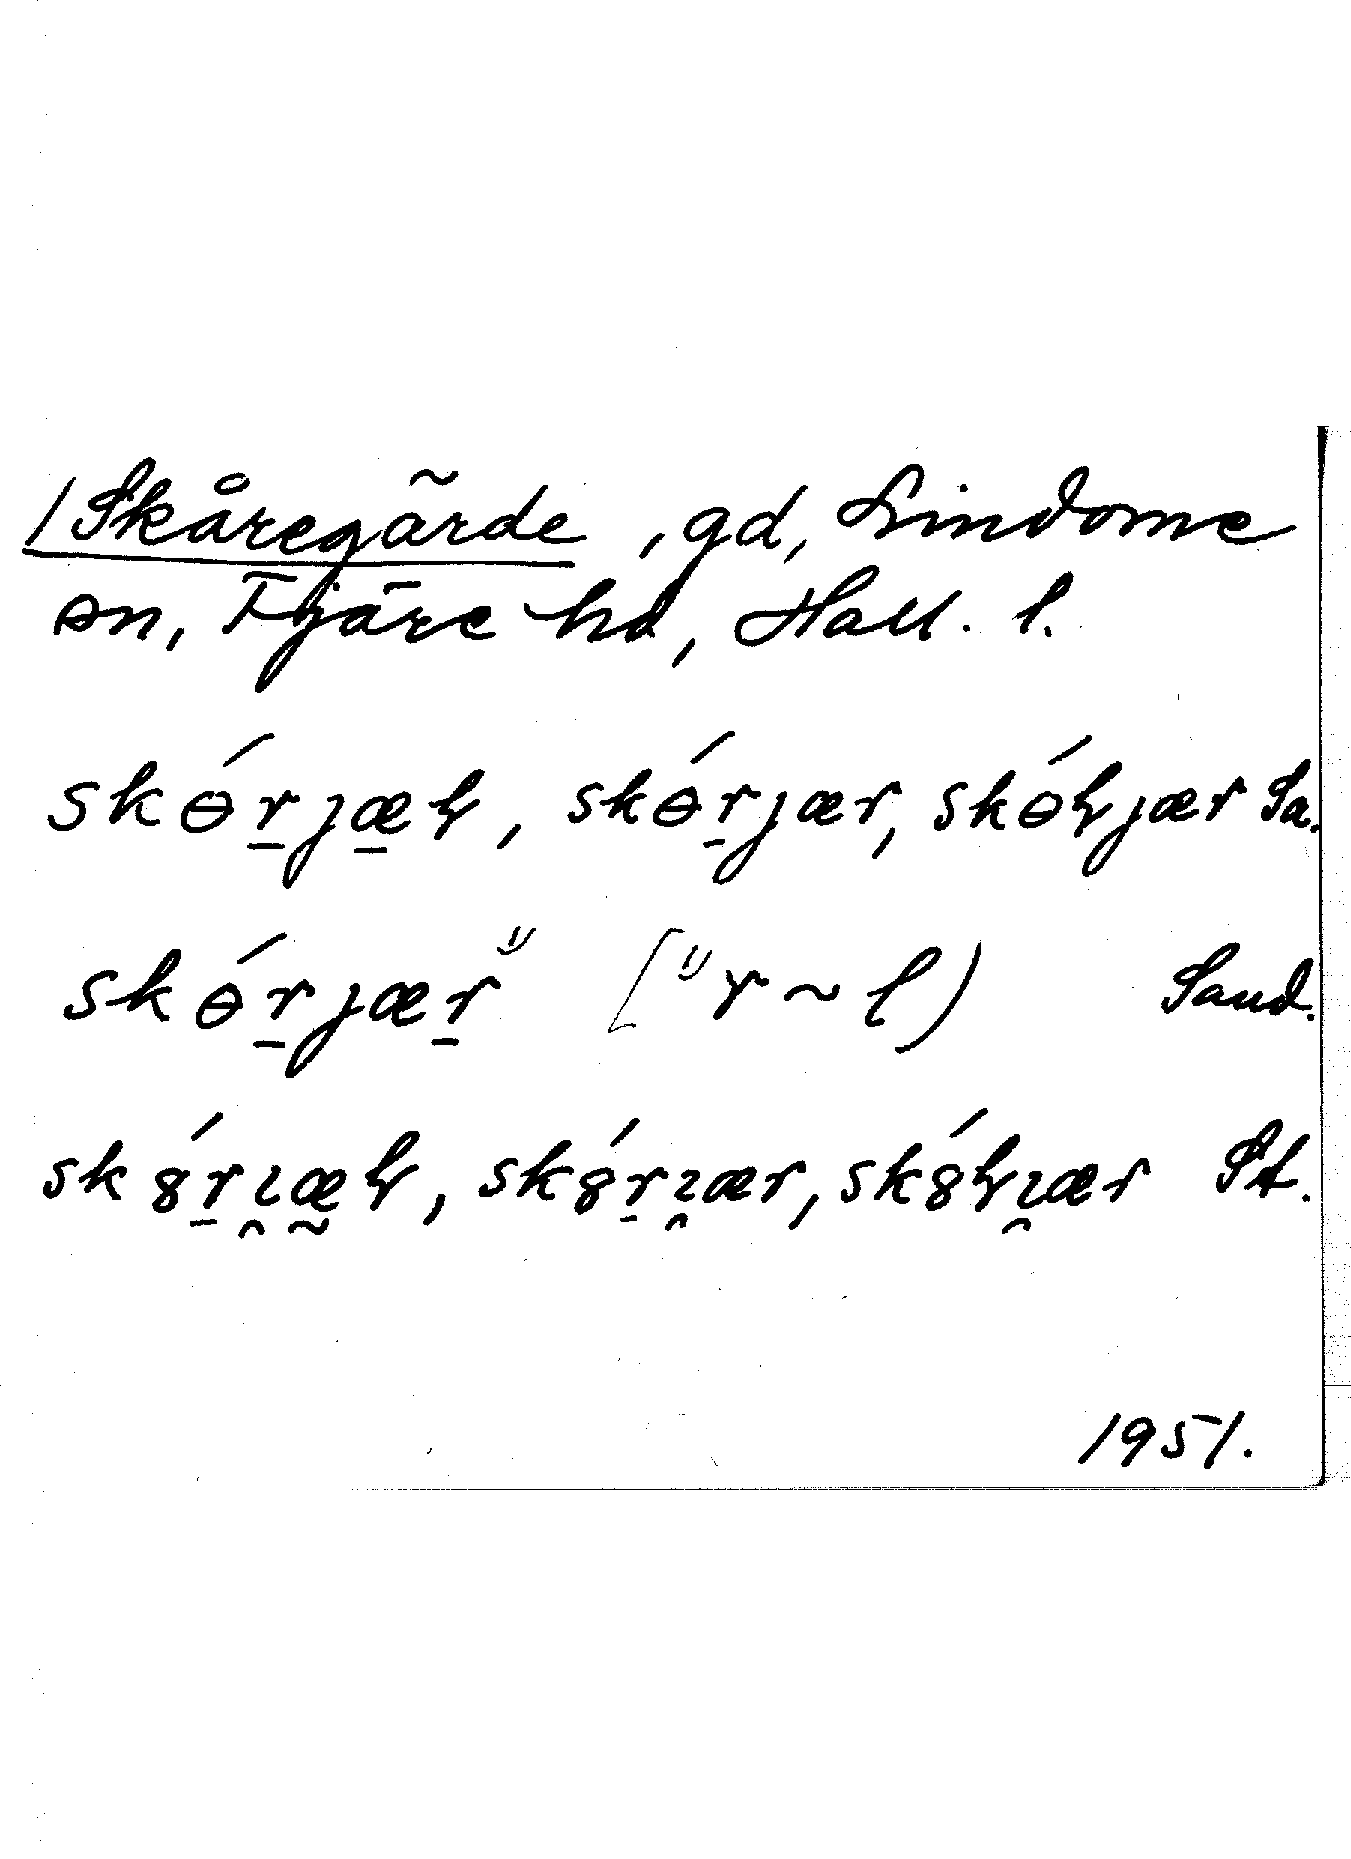 /Skåregärde, gd, Lindome
sn, Fjäre hd, Hall. l.
skɵ́r̲jæ̲ꝉ, skɵ́r̲jær, skɵ́ꝉjær Sa.
skɵ́r̲jær̲ ⁾⁾ [⁾⁾ r ~ l) Sand.
sk8́r̲ɿ̯æ̰ꝉ, sk8́r̲ɿ̯ær, sk8́ꝉɿ̯ær St.
1951.